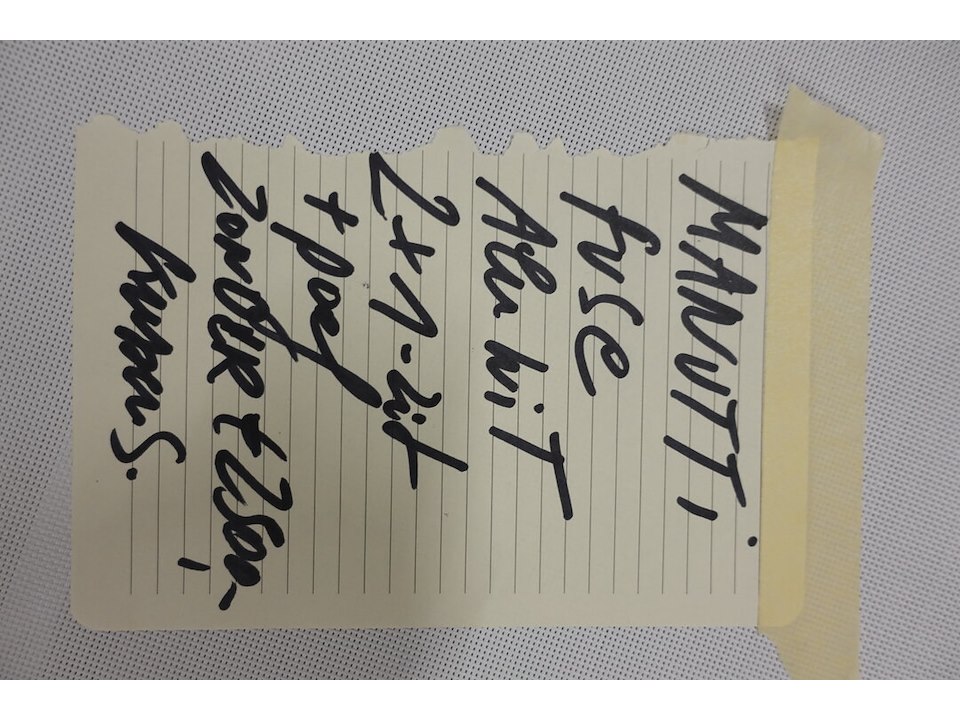 MANUTTI
fuse
Alu wiT
2x1-zit
+ poef
zonder t 2500,-
kussens.